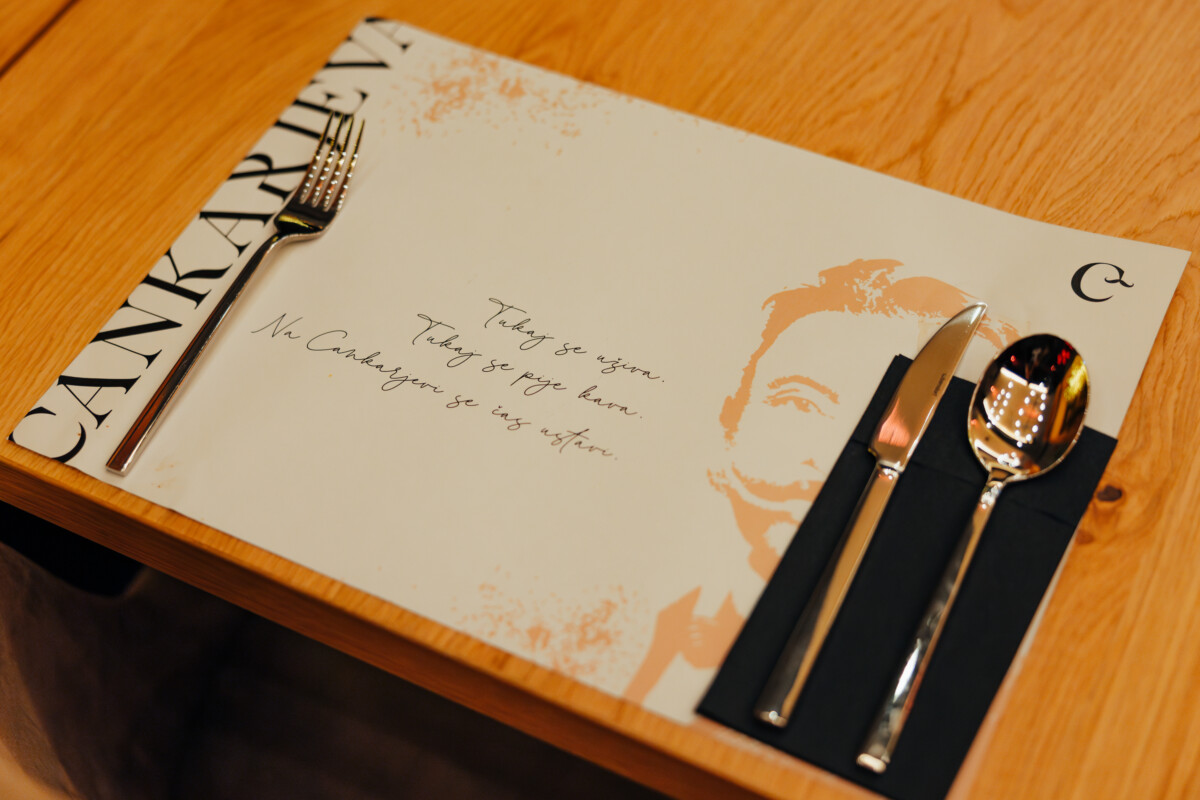 CANKARJEVA
C
Tukaj se uživa.
Tukaj se pije kava.
Na Cankarjevi se čas ustavi.